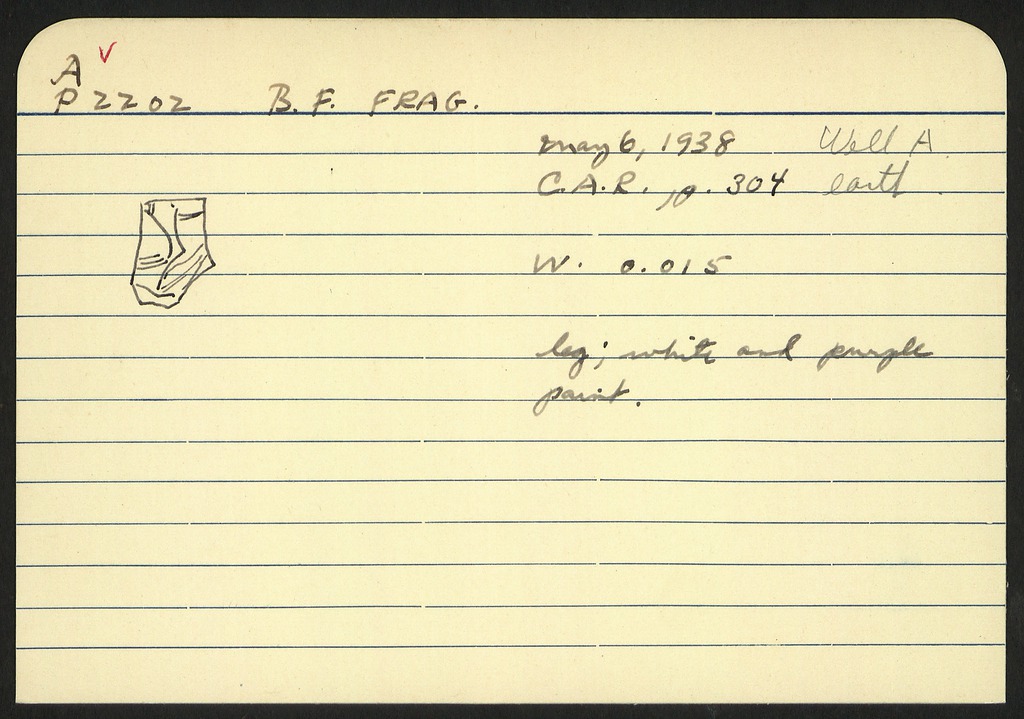 A ✓
P 2202 B. F. FRAG.
May 6, 1938 Well A
C.A.R. p. 304 earth
W. 0.015
leg; white and purple
paint.